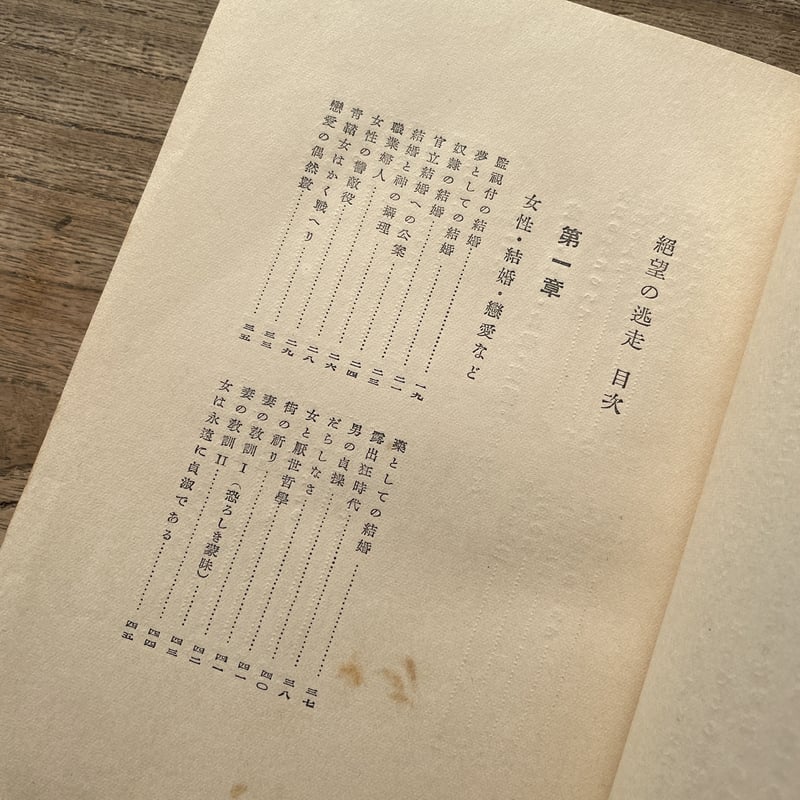 絶望の逃走 目次
第一章
女性・結婚・戀愛など
監視付の結婚……一九
夢としての結婚……二一
奴隷の結婚……二三
官立結婚への公案……二四
結婚と神の攝理……二六
職業婦人……二八
女性の讐敵役……二九
青鞜女はかく戰へり……三三
戀愛の偶然數……三五
藥としての結婚……三七
露出狂時代……三八
男の貞操……四〇
だらしなさ……四一
女と厭世哲學……四一
街の祈り……四二
妻の敎訓 I（恐ろしき蒙昧）……四三
妻の敎訓 II……四四
女は永遠に貞淑である……四五